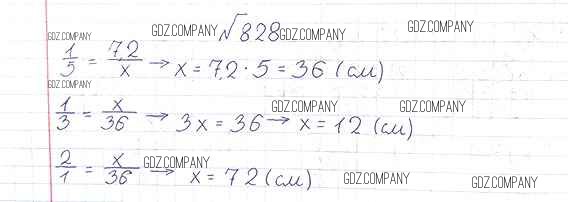 GDZ.COMPANY №828 GDZ.COMPANY GDZ.COMPANY
GDZ.COMPANY
1/5 = 7,2/x → x = 7,2 · 5 = 36 (см)
GDZ.COMPANY
GDZ.COMPANY GDZ.COMPANY
1/3 = x/36 → 3x = 36 → x = 12 (см)
GDZ.COMPANY
2/1 = x/36 → x = 72 (см) GDZ.COMPANY GDZ.COMPANY